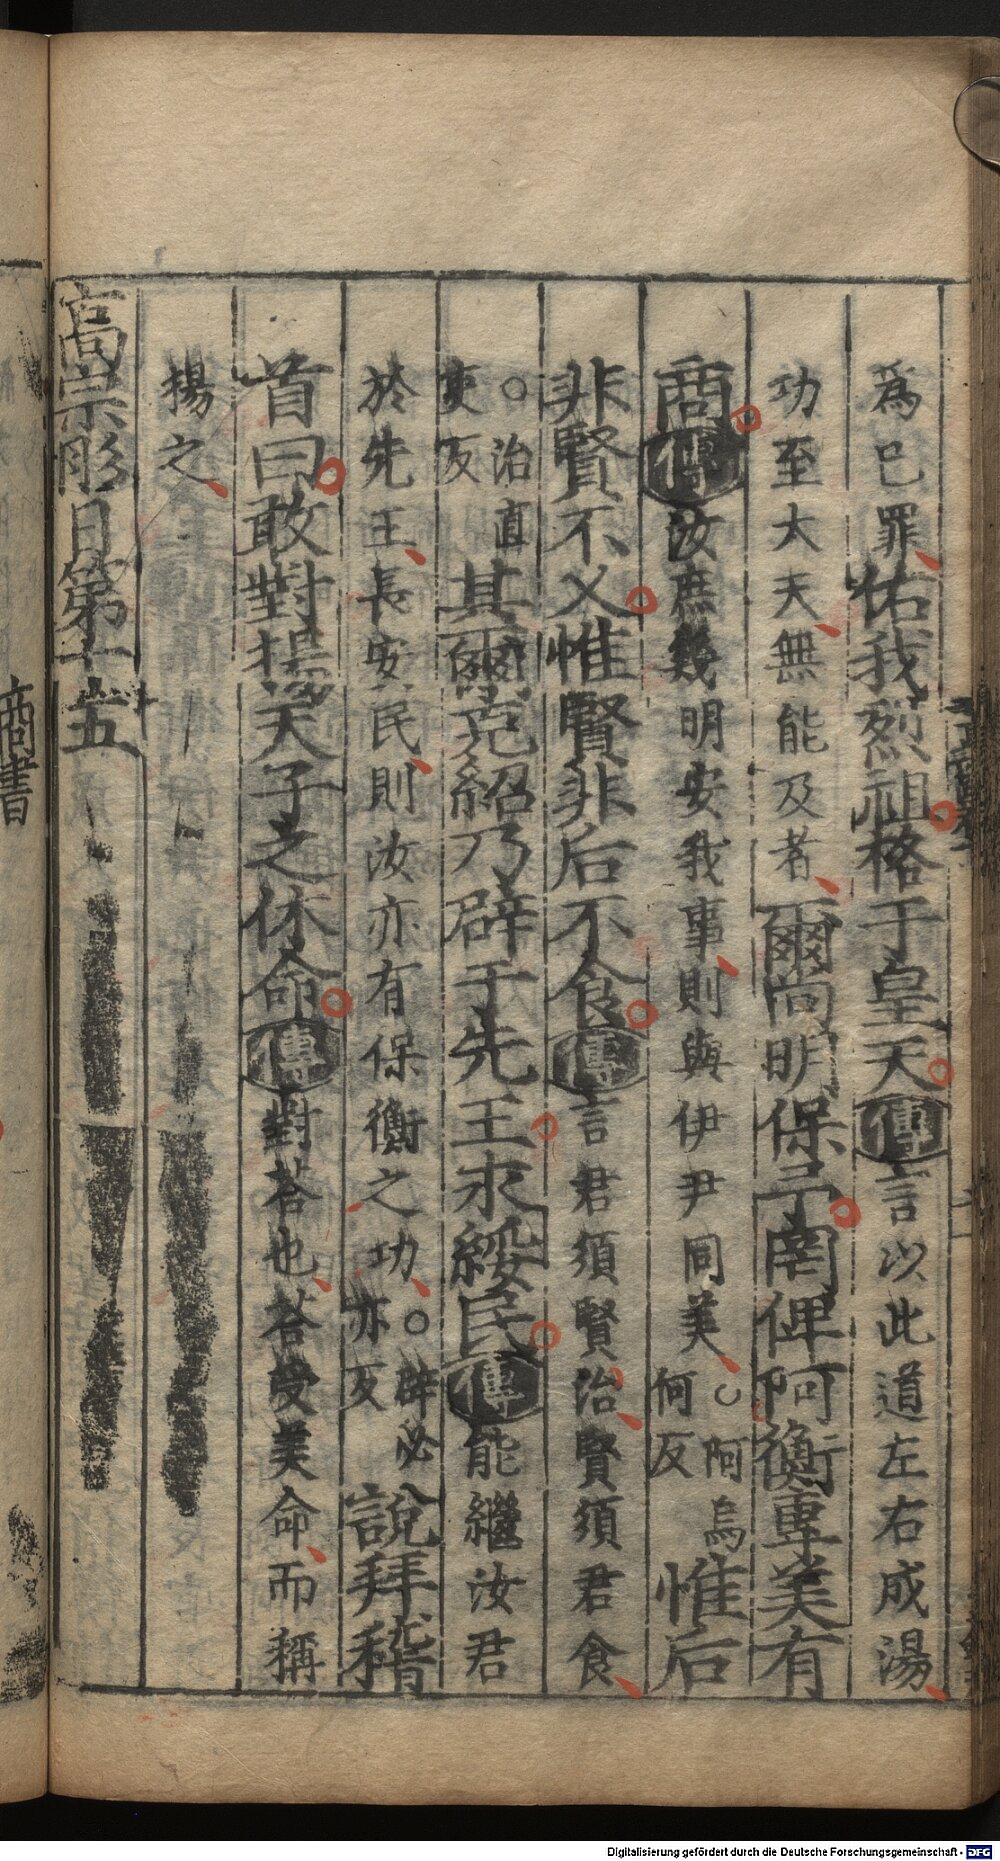 爲已罪佑我烈祖格于皇天傳言以此道左右成湯
功至大天無能及者爾尚明保予罔俾阿衡專美有
商傳汝庶幾明安我事則與伊尹同美○阿烏何反惟后
非賢不乂惟賢非后不食傳言君須賢治賢須君食
○治直吏反其爾克紹乃辟于先王永綏民傳能繼汝君
於先王長安民則汝亦有保衡之功○辟必亦反說拜稽
首曰敢對揚天子之休命傳對荅也荅受美命而稱
揚之
高宗肜日第十五
商書
Digitalisierung gefördert durch die Deutsche Forschungsgemeinschaft - DFG